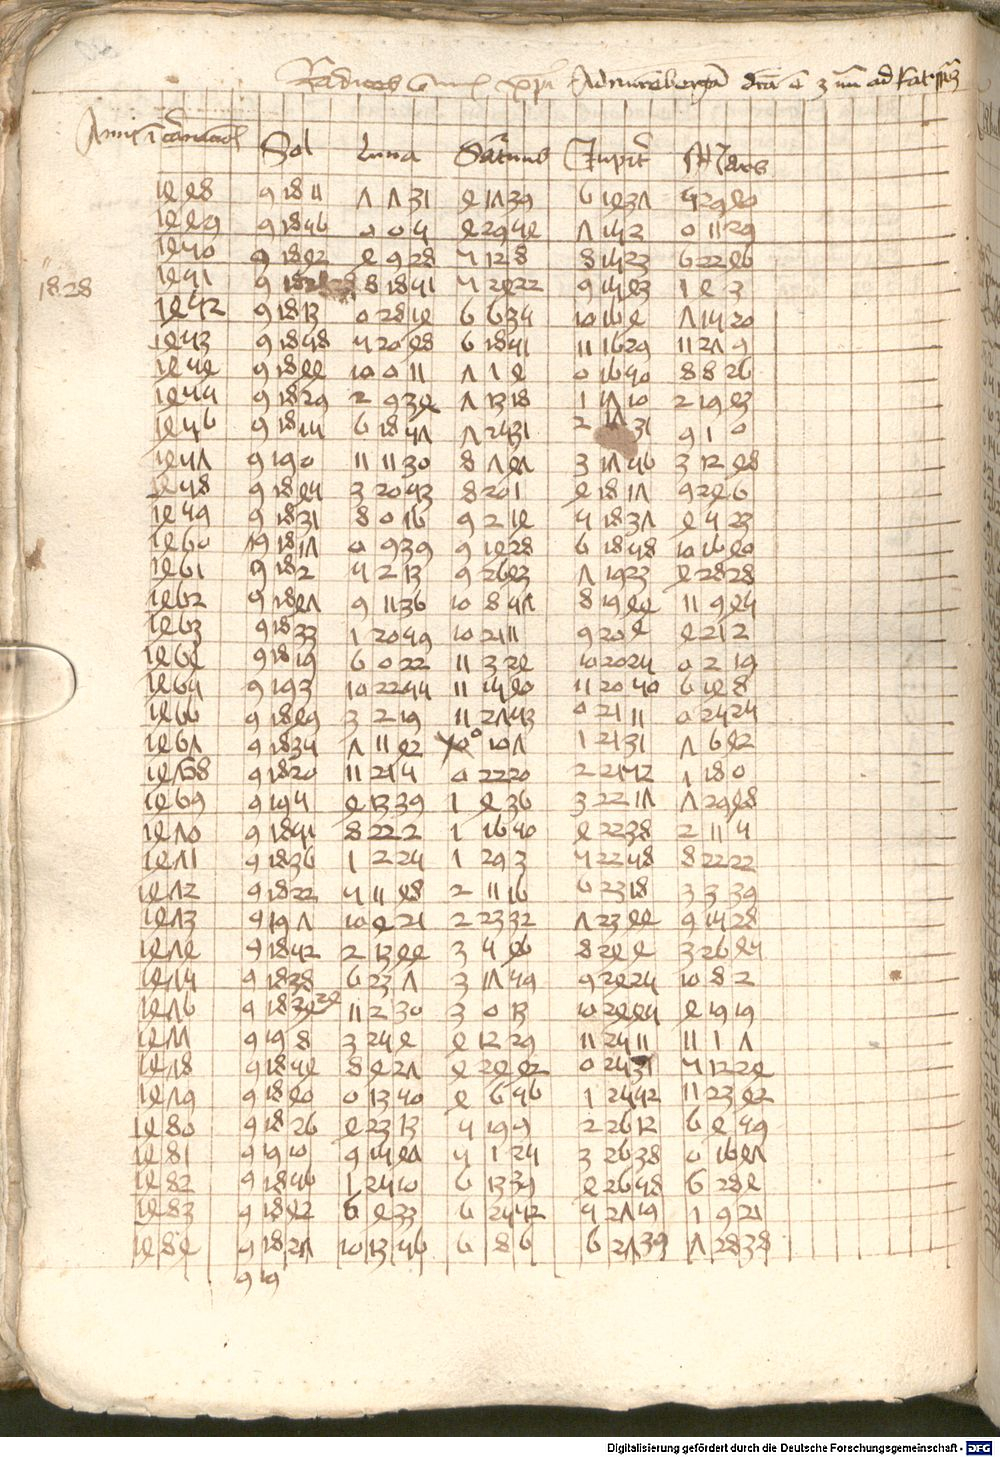 Radices Ad nurenbergam
Anni Sol Luna Saturnus Jupiter Mars
1448 9 18 11 7 7 31 4 17 39 6 14 37 5 29 40
1449 9 18 56 0 0 5 4 29 54 7 15 2 0 11 29
1450 9 18 42 4 9 28 5 12 8 8 15 23 6 22 46
18 28 1451 9 18 28 8 18 51 5 24 22 9 15 43 1 4 3
1452 9 18 13 0 28 14 6 6 35 10 16 4 7 15 20
1453 9 18 58 5 20 48 6 18 51 11 16 29 11 27 9
1454 9 18 44 10 0 11 7 1 4 0 16 50 8 8 26
1455 9 18 29 2 9 34 7 13 18 1 17 10 2 19 43
1456 9 18 15 6 18 57 7 25 31 2 17 31 9 1 0
1457 9 19 0 11 11 30 8 7 47 3 17 56 3 12 48
1458 9 18 45 3 20 53 8 20 1 4 18 17 9 24 6
1459 9 18 31 8 0 16 9 2 14 5 18 37 4 5 23
1460 9 18 17 0 9 39 9 14 28 6 18 58 10 16 40
1461 9 18 2 5 2 13 9 26 43 7 19 23 4 28 28
1462 9 18 47 9 11 36 10 8 57 8 19 44 11 9 45
1463 9 18 33 1 20 59 10 21 11 9 20 4 4 21 2
1464 9 18 19 6 0 22 11 3 24 10 20 25 0 2 19
1465 9 19 3 10 22 55 11 15 40 11 20 50 6 14 8
1466 9 18 49 3 2 19 11 27 53 0 21 11 0 25 25
1467 9 18 35 7 11 42 0 10 7 1 21 31 7 6 42
1468 9 18 20 11 21 5 0 22 20 2 21 52 1 18 0
1469 9 19 5 4 13 39 1 4 36 3 22 17 7 29 48
1470 9 18 51 8 22 2 1 16 50 4 22 38 2 11 5
1471 9 18 36 1 2 25 1 29 3 5 22 58 8 22 22
1472 9 18 22 5 11 48 2 11 16 6 23 18 3 3 39
1473 9 19 7 10 4 21 2 23 32 7 23 44 9 15 28
1474 9 18 52 2 13 44 3 5 46 8 24 4 3 26 45
1475 9 18 38 6 23 7 3 17 59 9 24 25 10 8 2
1476 9 18 24 11 2 30 3 0 13 10 24 45 4 19 19
1477 9 19 8 3 25 4 4 12 29 11 25 11 11 1 7
1478 9 18 54 8 4 27 4 24 42 0 25 31 5 12 24
1479 9 18 40 0 13 50 4 6 56 1 25 52 11 23 42
1480 9 18 26 4 23 13 5 19 9 2 26 12 6 4 59
1481 9 19 10 9 15 47 5 1 25 3 26 38 0 16 47
1482 9 18 56 1 25 10 6 13 39 4 26 58 6 28 4
1483 9 18 42 6 4 33 6 25 52 5 27 19 1 9 21
1484 9 18 27 10 13 56 6 8 6 6 27 39 7 28 38
9 19
Digitalisierung gefördert durch die Deutsche Forschungsgemeinschaft - DFG